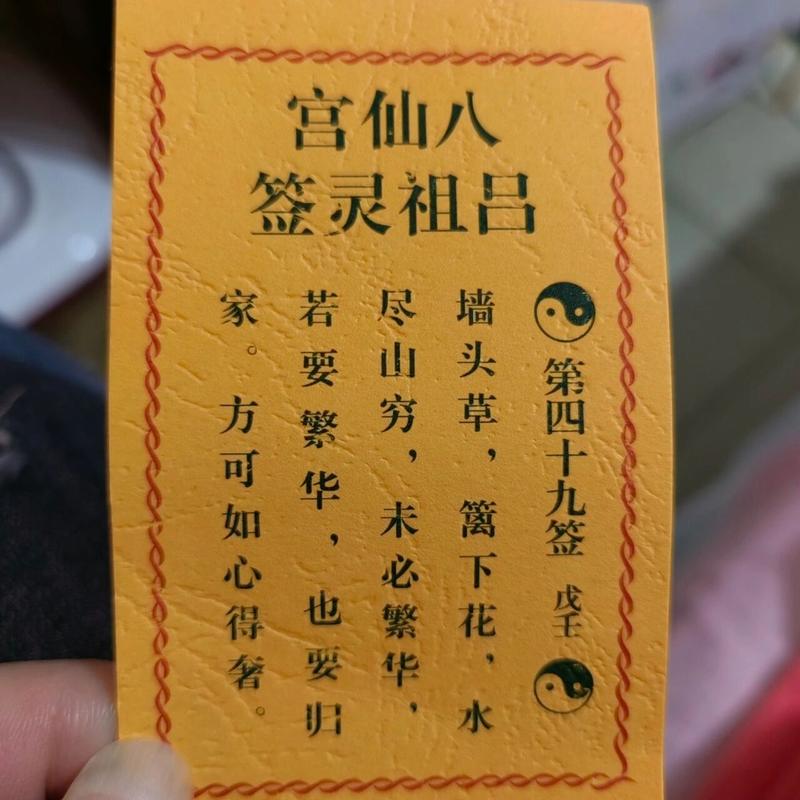 八仙宫
吕祖灵签
第四十九签 戊壬
墙头草，篱下花，水
尽山穷，未必繁华，
若要繁华，也要归
家。方可如心得奢。